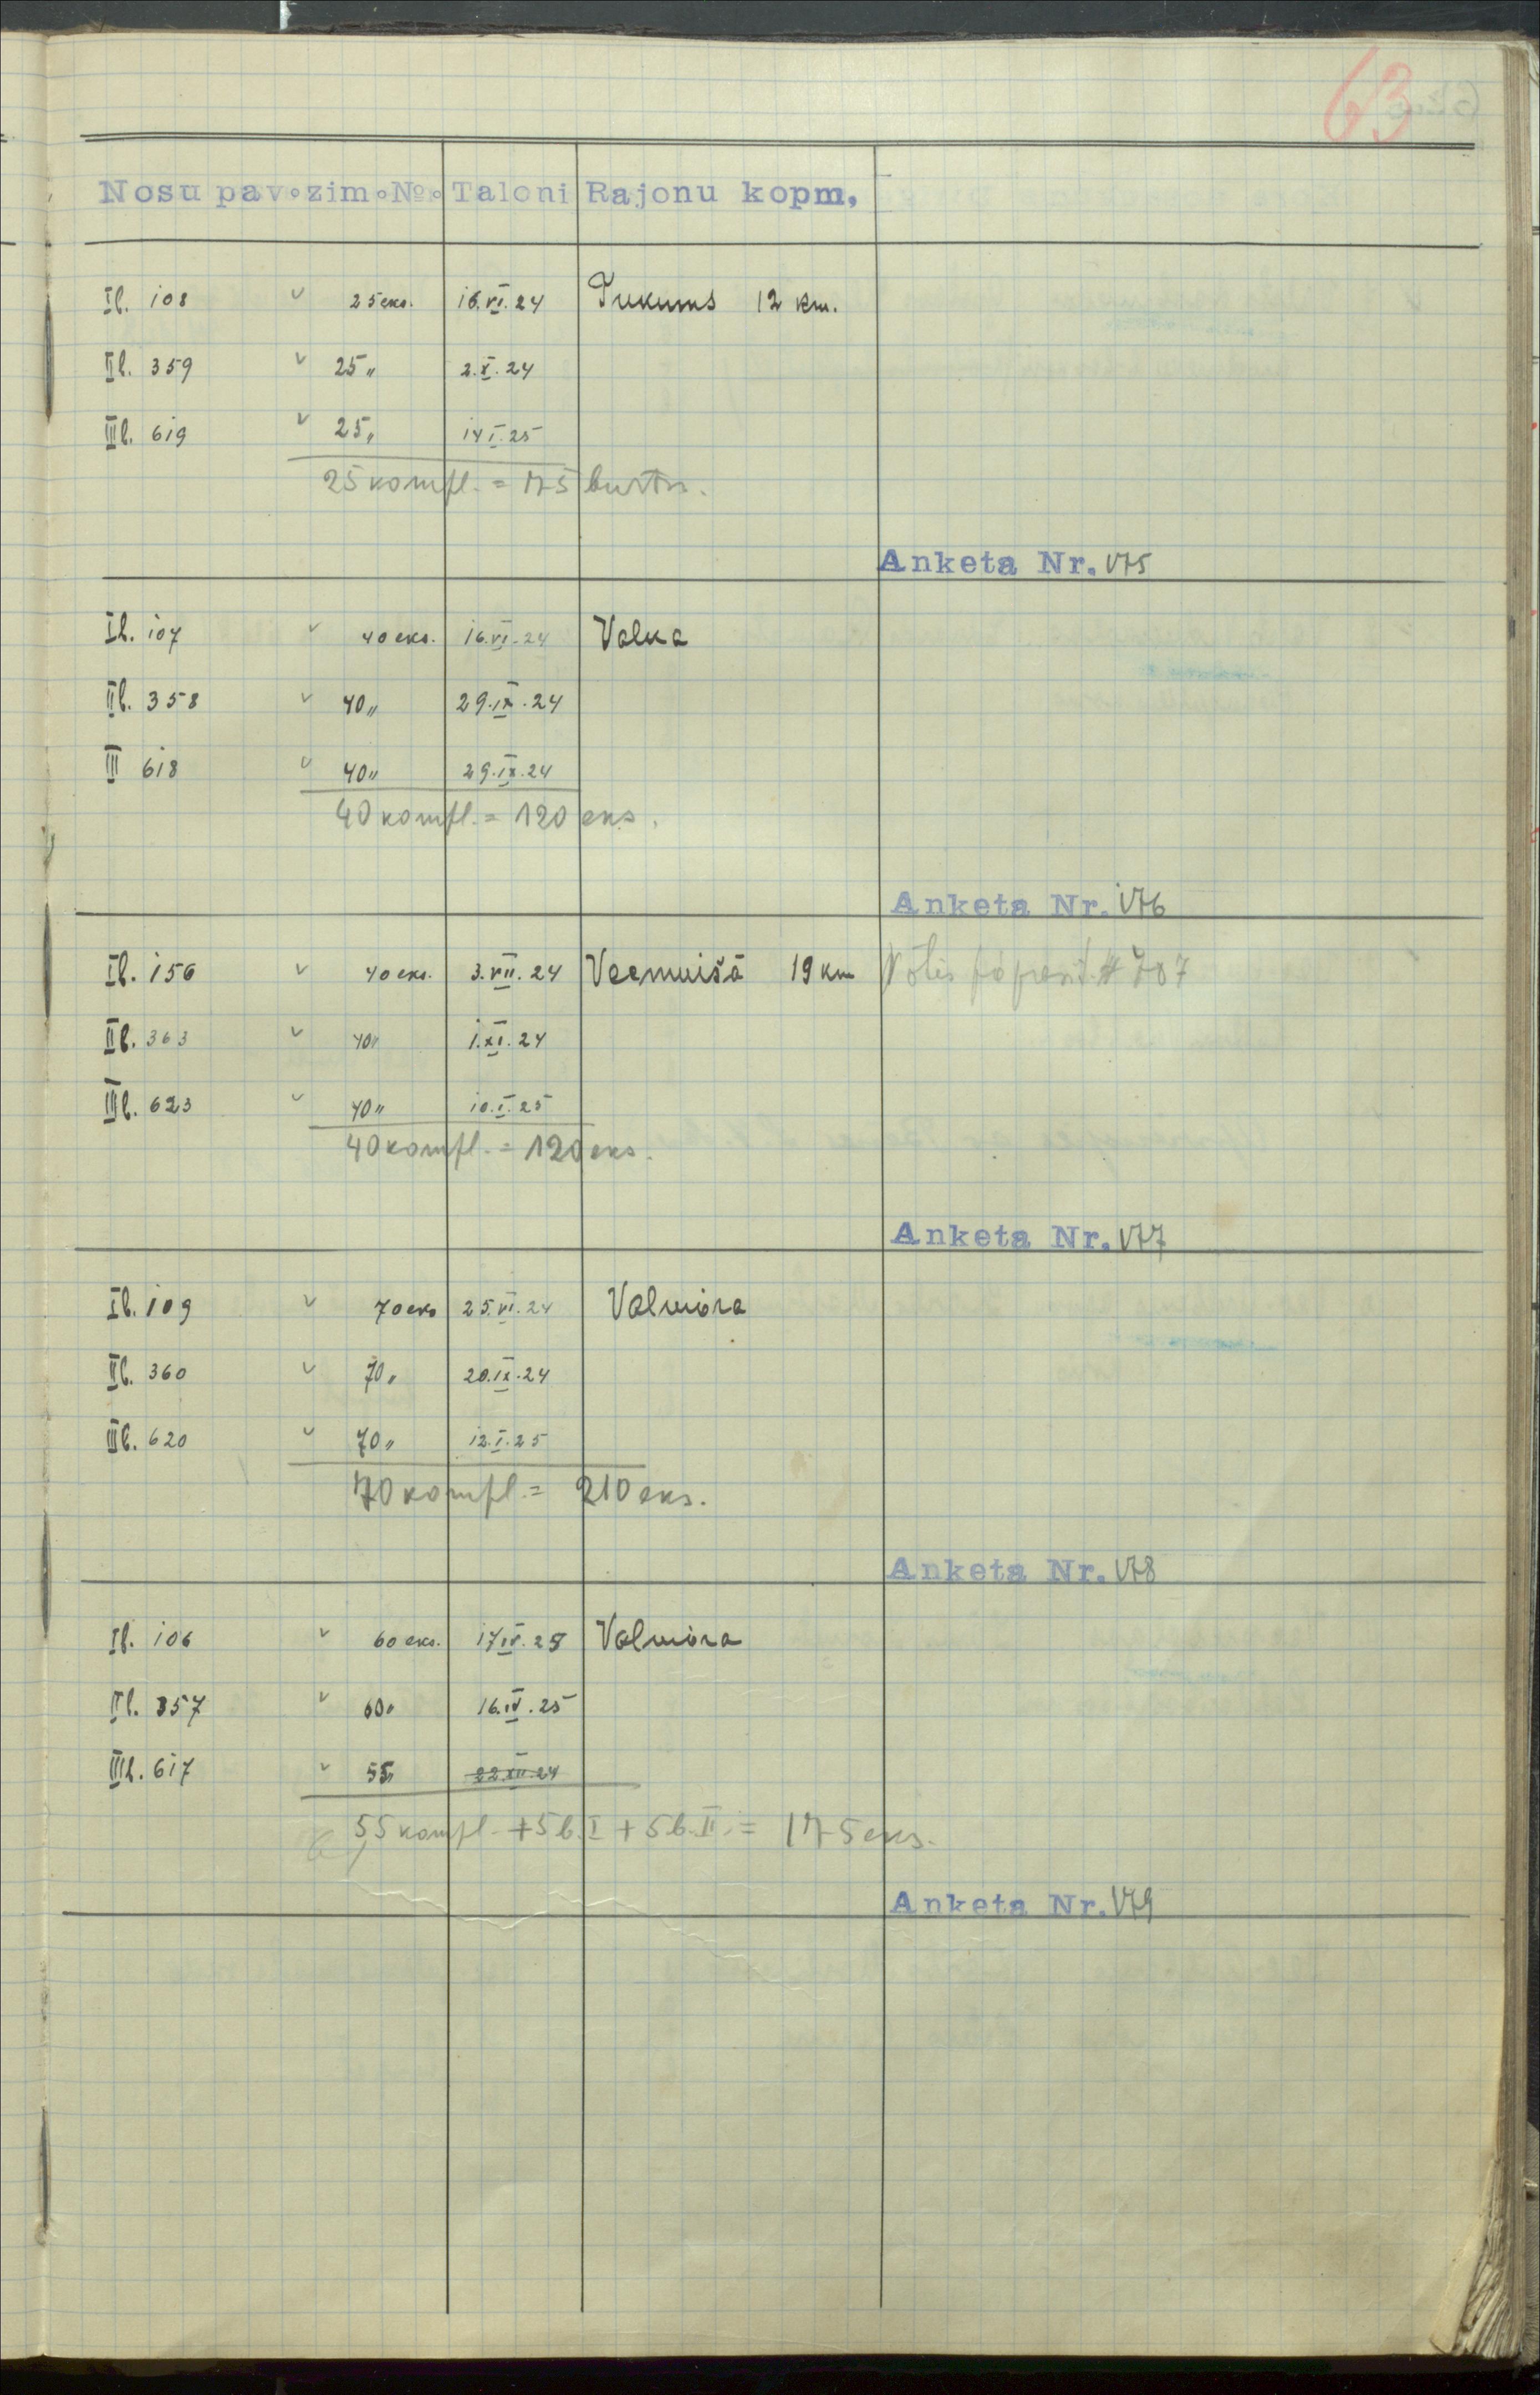 63
Nosu pav. zim. №. Taloni Rajonu kopm,
I b. 108 v 25 eks. 16.VI.24 Tukums 12 km.
II b. 359 v 25 " 2.X.24
III b. 619 v 25 " 14 I.25
25 kompl. = 75 burtn.
Anketa Nr. 175
I b. 107 v 40 eks. 16.VI.24 Valka
II b. 358 v 40 " 29.IX.24
III 618 v 40 " 29.IX.24
40 kompl. = 120 eks.
Anketa Nr. 176
I b. 156 v 40 eks. 3.VII.24 Vecmuižā 19 km # 707
II b. 363 v 40 " 1.XI.24
III b. 623 v 40 " 10.I.25
40 kompl. = 120 eks.
Anketa Nr. 177
I b. 109 v 70 eks 25.VI.24 Valmiera
II b. 360 v 70 " 20.IX.24
III b. 620 v 70 " 12.I.25
70 kompl. = 210 eks.
Anketa Nr. 178
I b. 106 v 60 eks. 17 IV.25 Valmiera
II b. 357 v 60 " 16.IV.25
III b. 617 v 55 " 22.XII.24
55 kompl. + 5 b. I + 5 b. II. = 175 eks.
Anketa Nr. 179